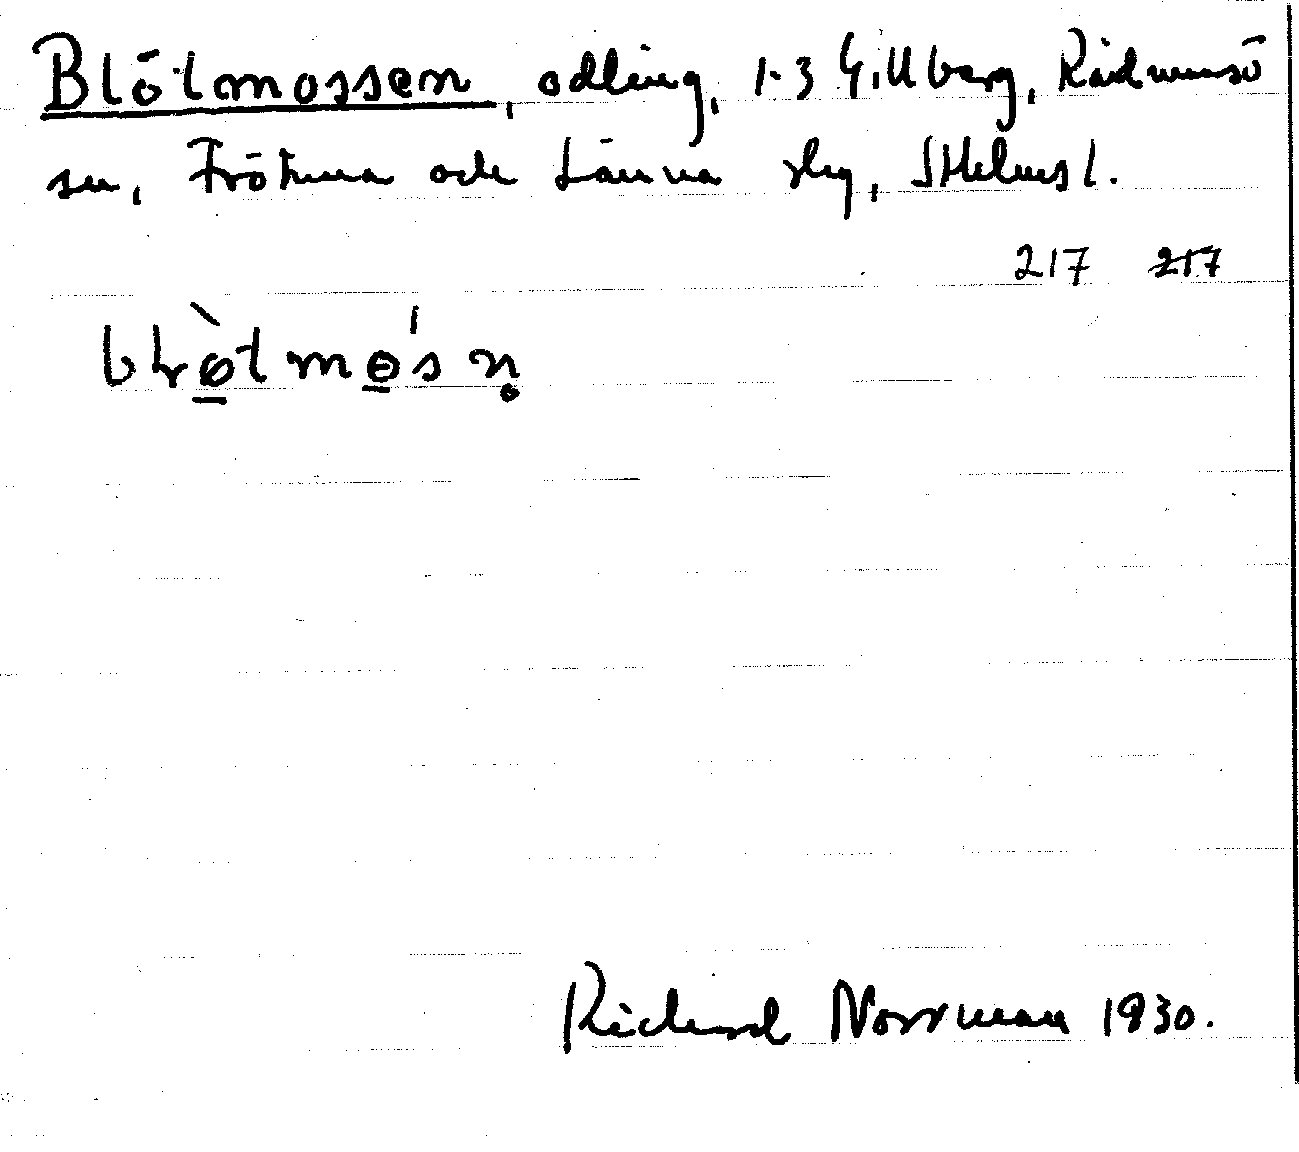 Blötmossen, odling, 1-3 Gillberg, Rådmansö
sn, Frötuna och Länna slg, Sthlms l.
217 217
Richard Norrman 1930.